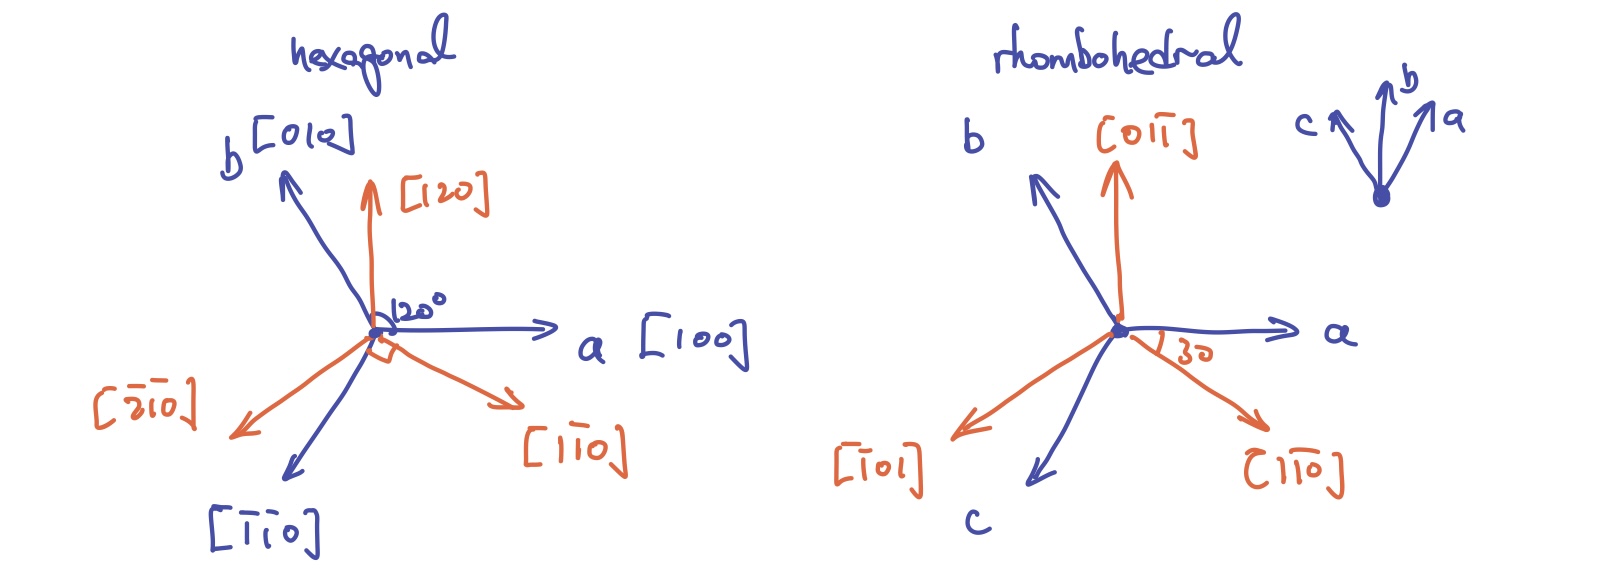 hexagonal
b [010]
[120]
120°
a [100]
[2̄1̄0]
[11̄0]
[1̄1̄0]
rhombohedral
b
[011̄]
c
b
a
a
30
[1̄01]
[11̄0]
c